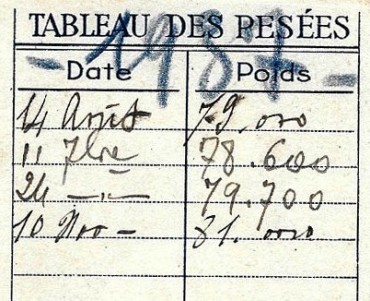 TABLEAU DES PESÉES
- 1937 -
Date Poids
14 Août 79.000
11 7bre 78.600
24 -"- 79.700
10 Nov - 81.000